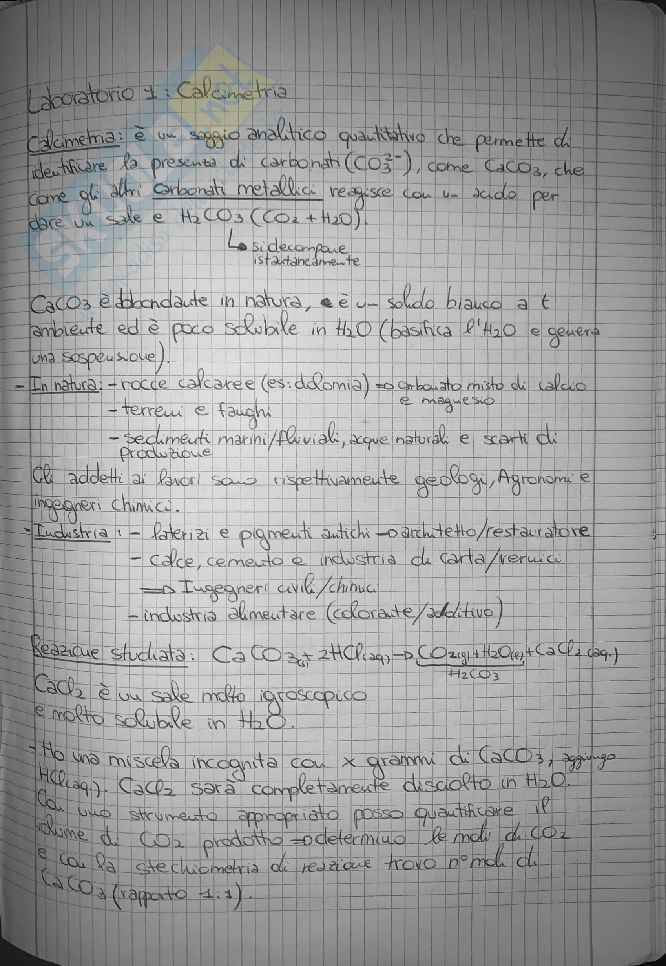 Laboratorio 1: Calcimetria
Calcimetria: è un saggio analitico quantitativo che permette di
identificare la presenza di carbonati (CO₃²⁻), come CaCO₃, che
come gli altri carbonati metallici reagisce con un acido per
dare un sale e H₂CO₃ (CO₂ + H₂O).
↳ si decompone
istantaneamente
CaCO₃ è abbondante in natura, è un solido bianco a t
ambiente ed è poco solubile in H₂O (basifica l'H₂O e genera
una sospensione).
- In natura: - rocce calcaree (es: dolomia) ⇒ carbonato misto di calcio
e magnesio
- terreni e fanghi
- sedimenti marini/fluviali, acque naturali e scarti di
produzione
Gli addetti ai lavori sono rispettivamente geologi, Agronomi e
ingegneri chimici.
- Industria: - laterizi e pigmenti antichi → architetto/restauratore
- calce, cemento e industria di carta/vernici
⇒ Ingegneri civili/chimici
- industria alimentare (colorante/additivo)
Reazione studiata: CaCO₃(s) + 2HCl(aq) → CO₂(g) + H₂O(l) + CaCl₂(aq.)
H₂CO₃
CaCl₂ è un sale molto igroscopico
e molto solubile in H₂O.
- Ho una miscela incognita con x grammi di CaCO₃, aggiungo
HCl(aq.). CaCl₂ sarà completamente disciolto in H₂O.
Con uno strumento appropriato posso quantificare il
volume di CO₂ prodotto ⇒ determino le moli di CO₂
e con la stechiometria di reazione trovo n° moli di
CaCO₃ (rapporto 1:1).